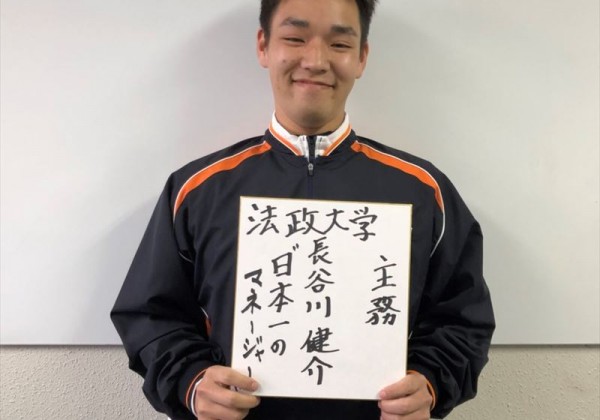 法政大学
主務
長谷川健介
"日本一の
マネージャー